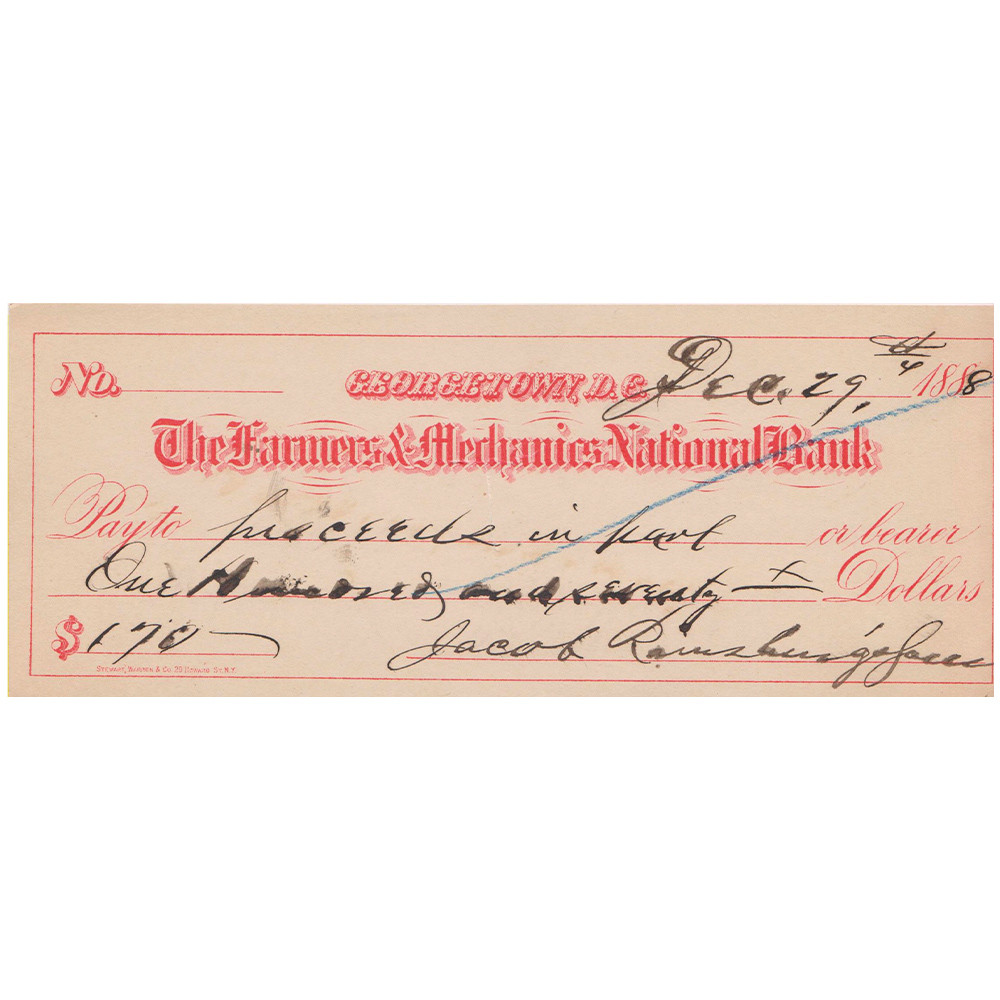 No. GEORGETOWN, D.C. Dec. 29, 1888
The Farmers & Mechanics National Bank
Pay to proceeds in part or bearer
One Hundred and seventy x Dollars
$ 170 Jacob Ramsburg & Son
STEWART, WARREN & CO. 29 HOWARD ST. N.Y.